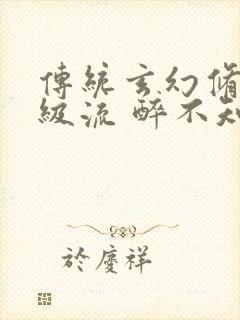 傳統玄幻脩
級流 醉不知
於慶祥